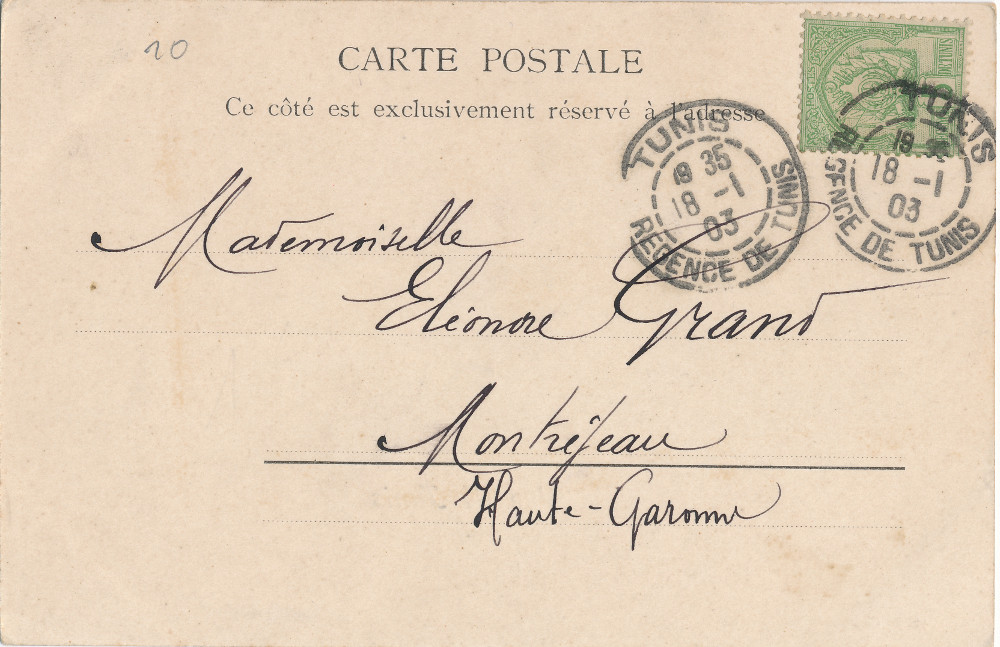 20
CARTE POSTALE
Ce côté est exclusivement réservé à l'adresse
TUNIS
TUNIS
19 35
18 -1
03
REGENCE DE TUNIS
TUNIS
19
18 -1
03
REGENCE DE TUNIS
Mademoiselle
Eléonore Grand
Montréjeau
Haute-Garonne